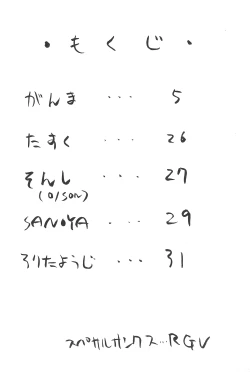 ・もくじ・
がんま ... 5
たすく ... 26
そんし ... 27
(O/SON)
SANOYA ... 29
ろりたようじ ... 31
スペシャルサンクス...RGV